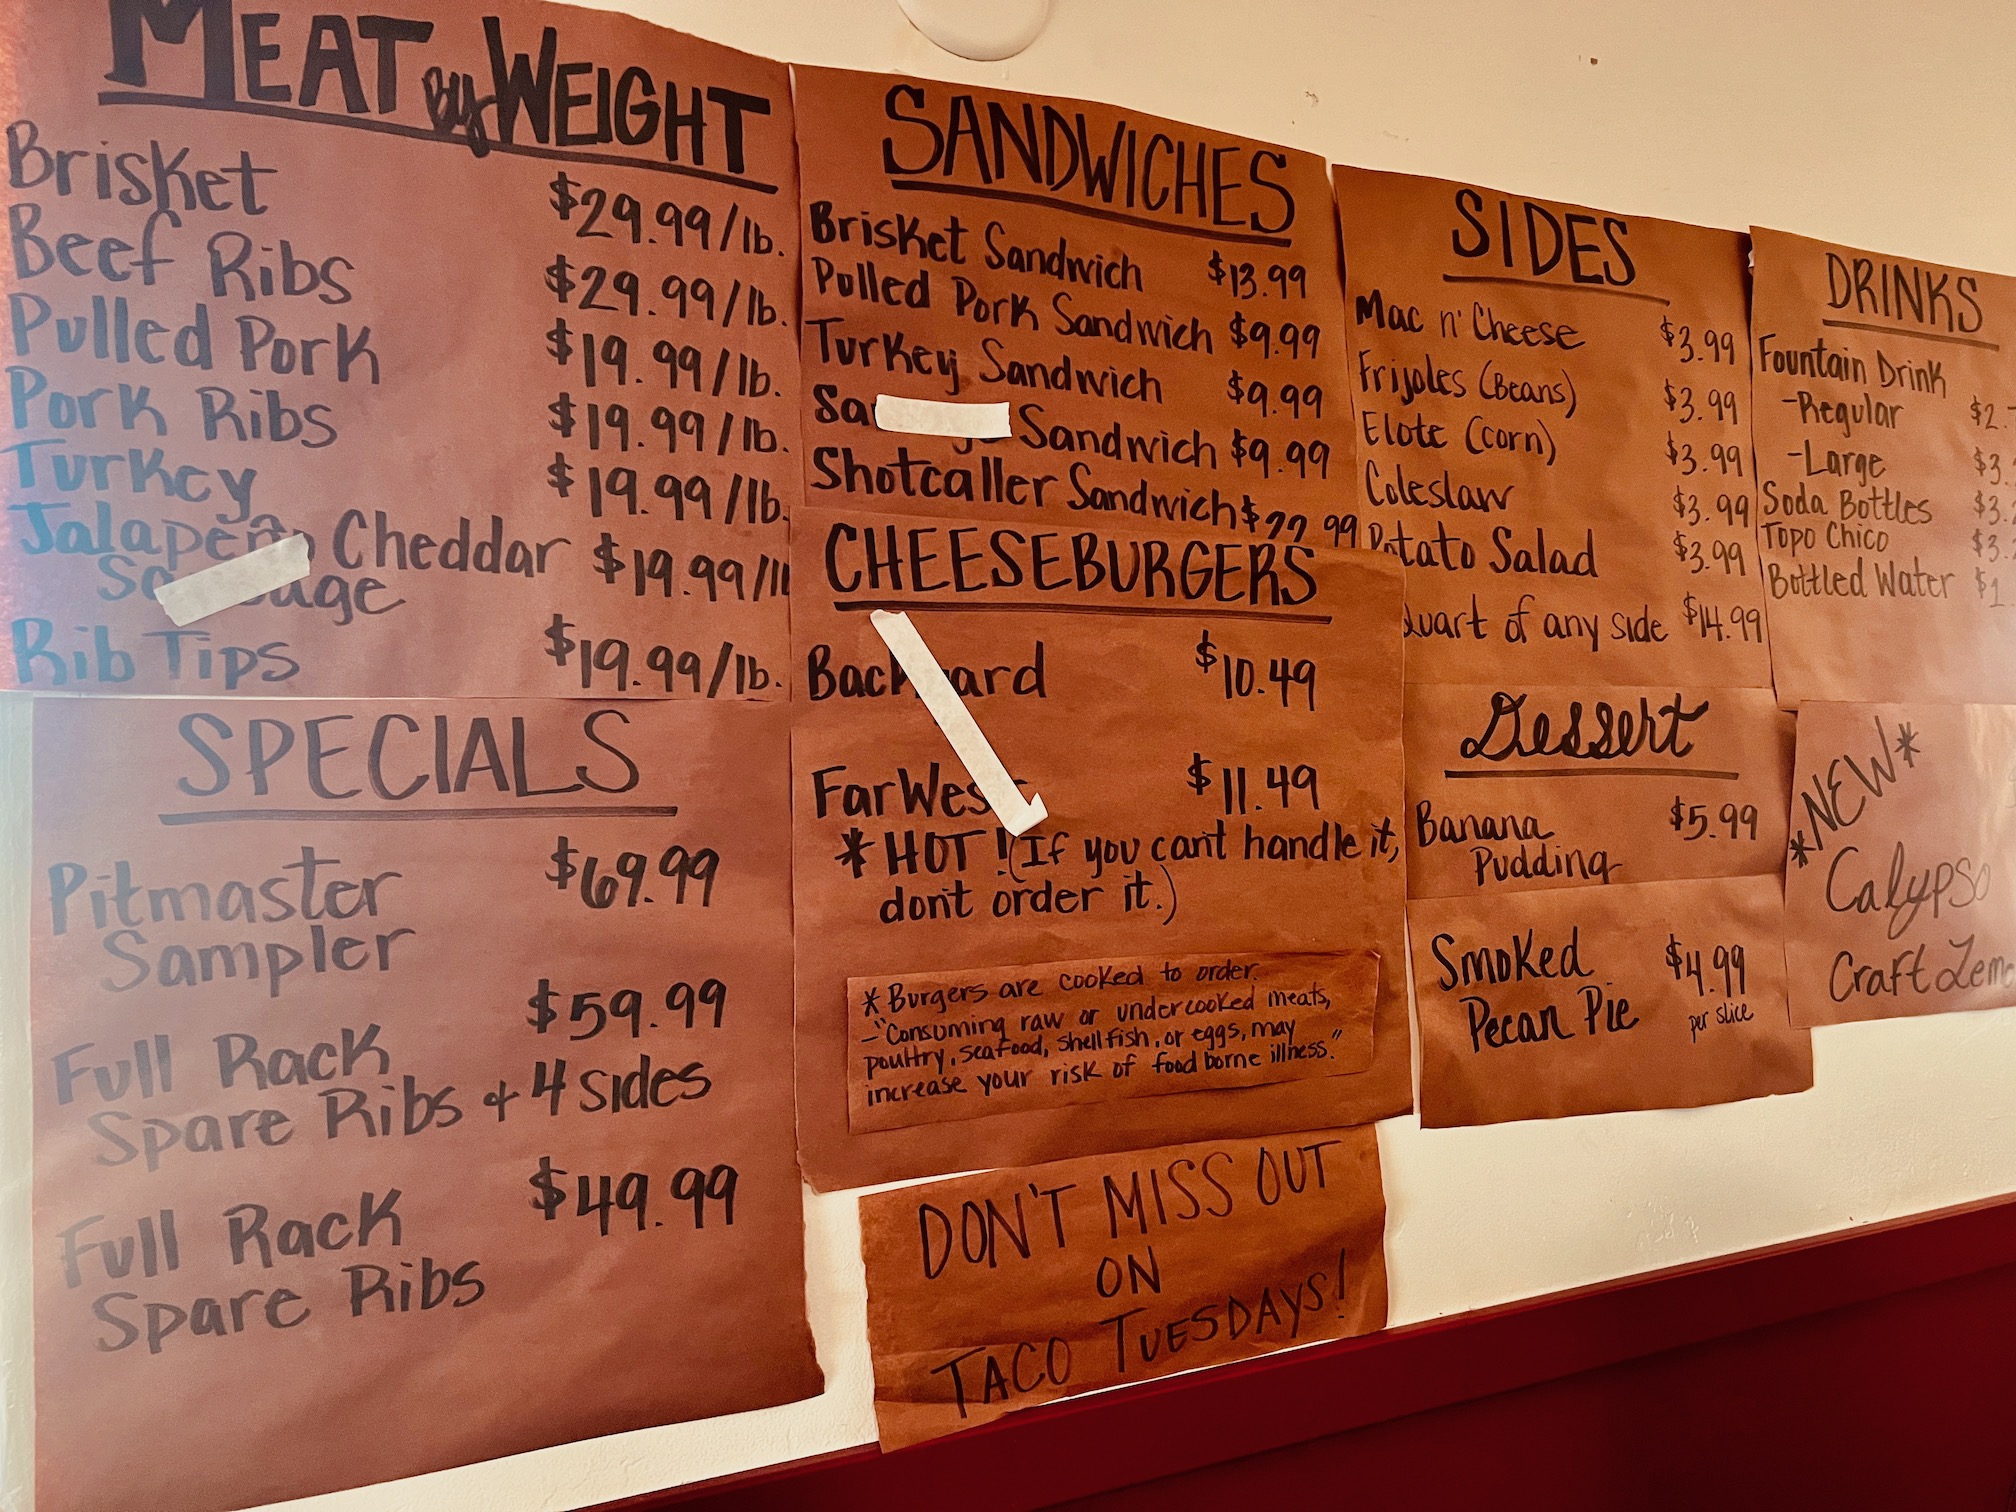 MEAT by WEIGHT
Brisket $29.99/lb.
Beef Ribs $29.99/lb.
Pulled Pork $19.99/lb.
Pork Ribs $19.99/lb.
Turkey $19.99/lb.
Jalapeño Cheddar $19.99/lb
Sausage
Rib Tips $19.99/lb.
SPECIALS
Pitmaster $69.99
Sampler
Full Rack $59.99
Spare Ribs + 4 sides
Full Rack $49.99
Spare Ribs
SANDWICHES
Brisket Sandwich $13.99
Pulled Pork Sandwich $9.99
Turkey Sandwich $9.99
Sausage Sandwich $9.99
Shotcaller Sandwich $22.99
CHEESEBURGERS
Backyard $10.49
Far West $11.49
*HOT! (If you can't handle it,
don't order it.)
*Burgers are cooked to order.
-"Consuming raw or undercooked meats,
poultry, seafood, shellfish, or eggs, may
increase your risk of food borne illness."
DON'T MISS OUT
ON
TACO TUESDAYS!
SIDES
Mac n' Cheese $3.99
Frijoles (Beans) $3.99
Elote (corn) $3.99
Coleslaw $3.99
Potato Salad $3.99
Quart of any side $14.99
Dessert
Banana $5.99
Pudding
Smoked $4.99
Pecan Pie per slice
DRINKS
Fountain Drink
-Regular $2.
-Large $3.
Soda Bottles $3.
Topo Chico $3.
Bottled Water $1
*NEW*
Calypso
Craft Lem